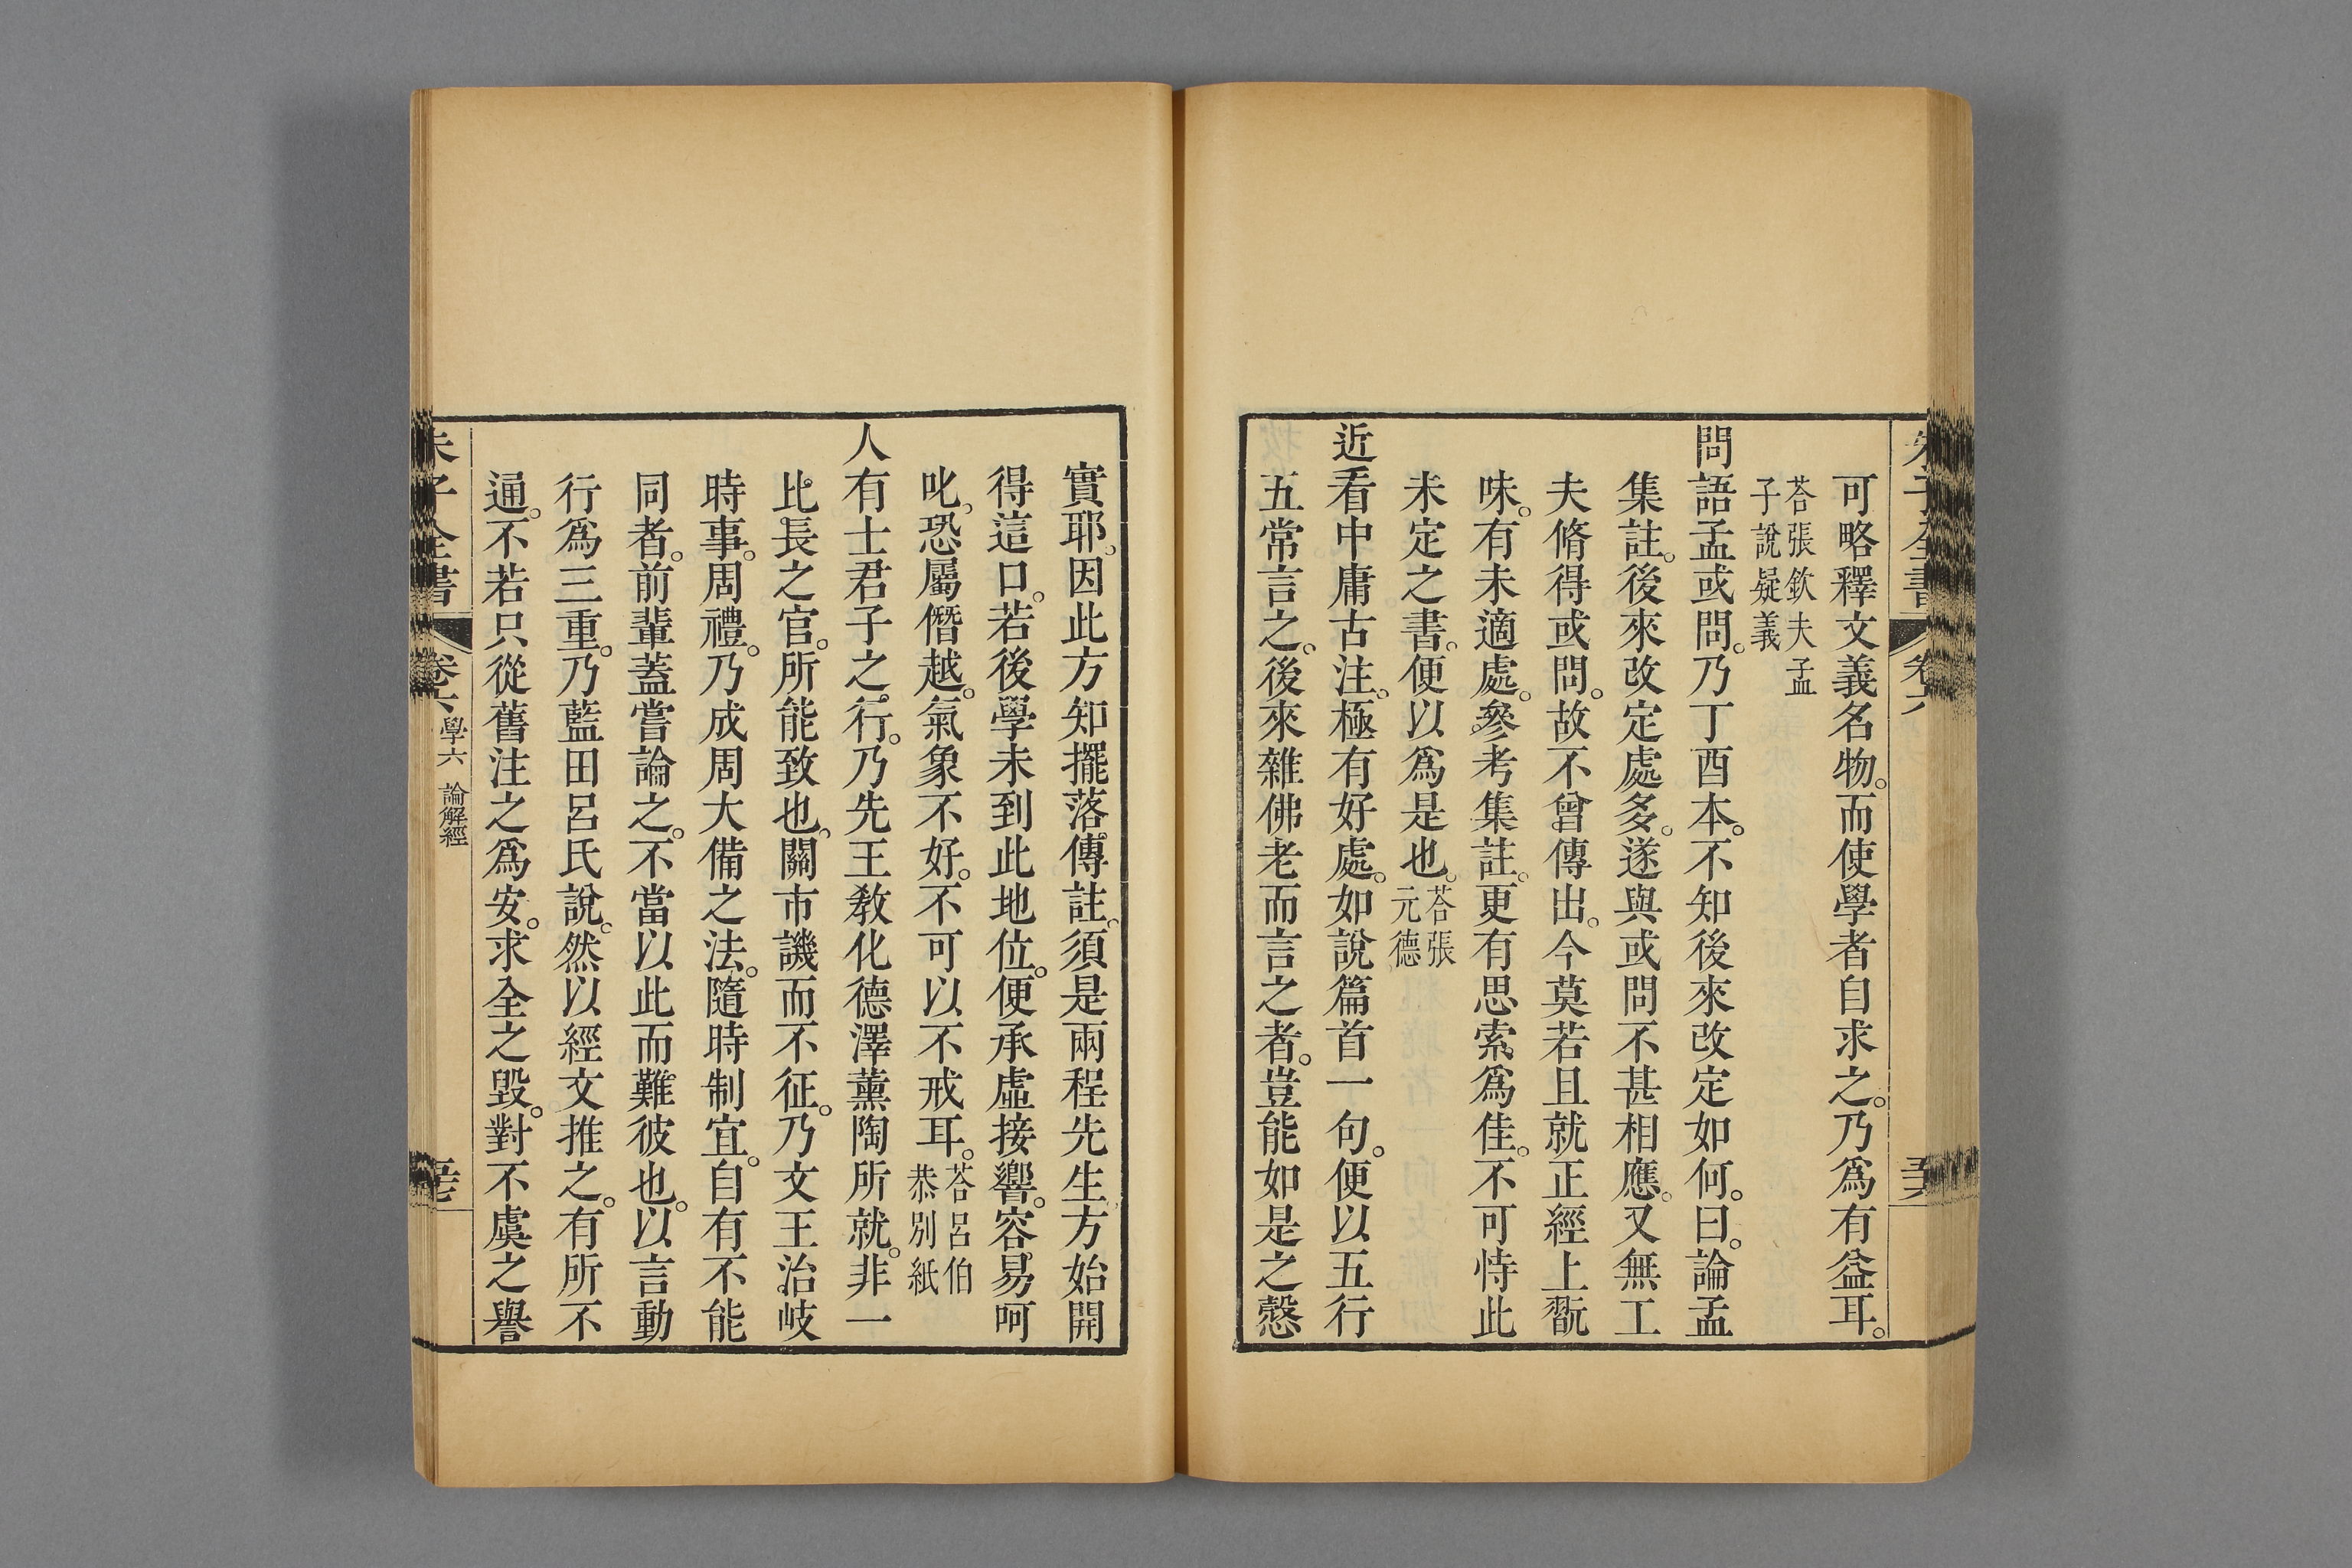 朱子全書 卷六
可略釋文義名物。而使學者自求之。乃爲有益耳。
荅張欽夫孟
子說疑義
問語孟或問。乃丁酉本。不知後來改定如何。曰。論孟
集註。後來改定處多。遂與或問不甚相應。又無工
夫脩得或問。故不曾傳出。今莫若且就正經上翫
味。有未適處。參考集註。更有思索爲佳。不可恃此
未定之書。便以爲是也。荅張
元德
近看中庸古注。極有好處。如說篇首一句。便以五行
五常言之。後來雜佛老而言之者。豈能如是之慤
實耶。因此方知擺落傳註。須是兩程先生方始開
得這口。若後學未到此地位。便承虛接響。容易呵
叱。恐屬僭越。氣象不好。不可以不戒耳。荅呂伯
恭別紙
人有士君子之行。乃先王教化德澤薰陶所就。非一
比長之官。所能致也。關市譏而不征。乃文王治岐
時事。周禮。乃成周大備之法。隨時制宜。自有不能
同者。前輩蓋嘗論之。不當以此而難彼也。以言動
行爲三重。乃藍田呂氏說。然以經文推之。有所不
通。不若只從舊注之爲安。求全之毀。對不虞之譽
朱子全書 卷六 學六 論解經